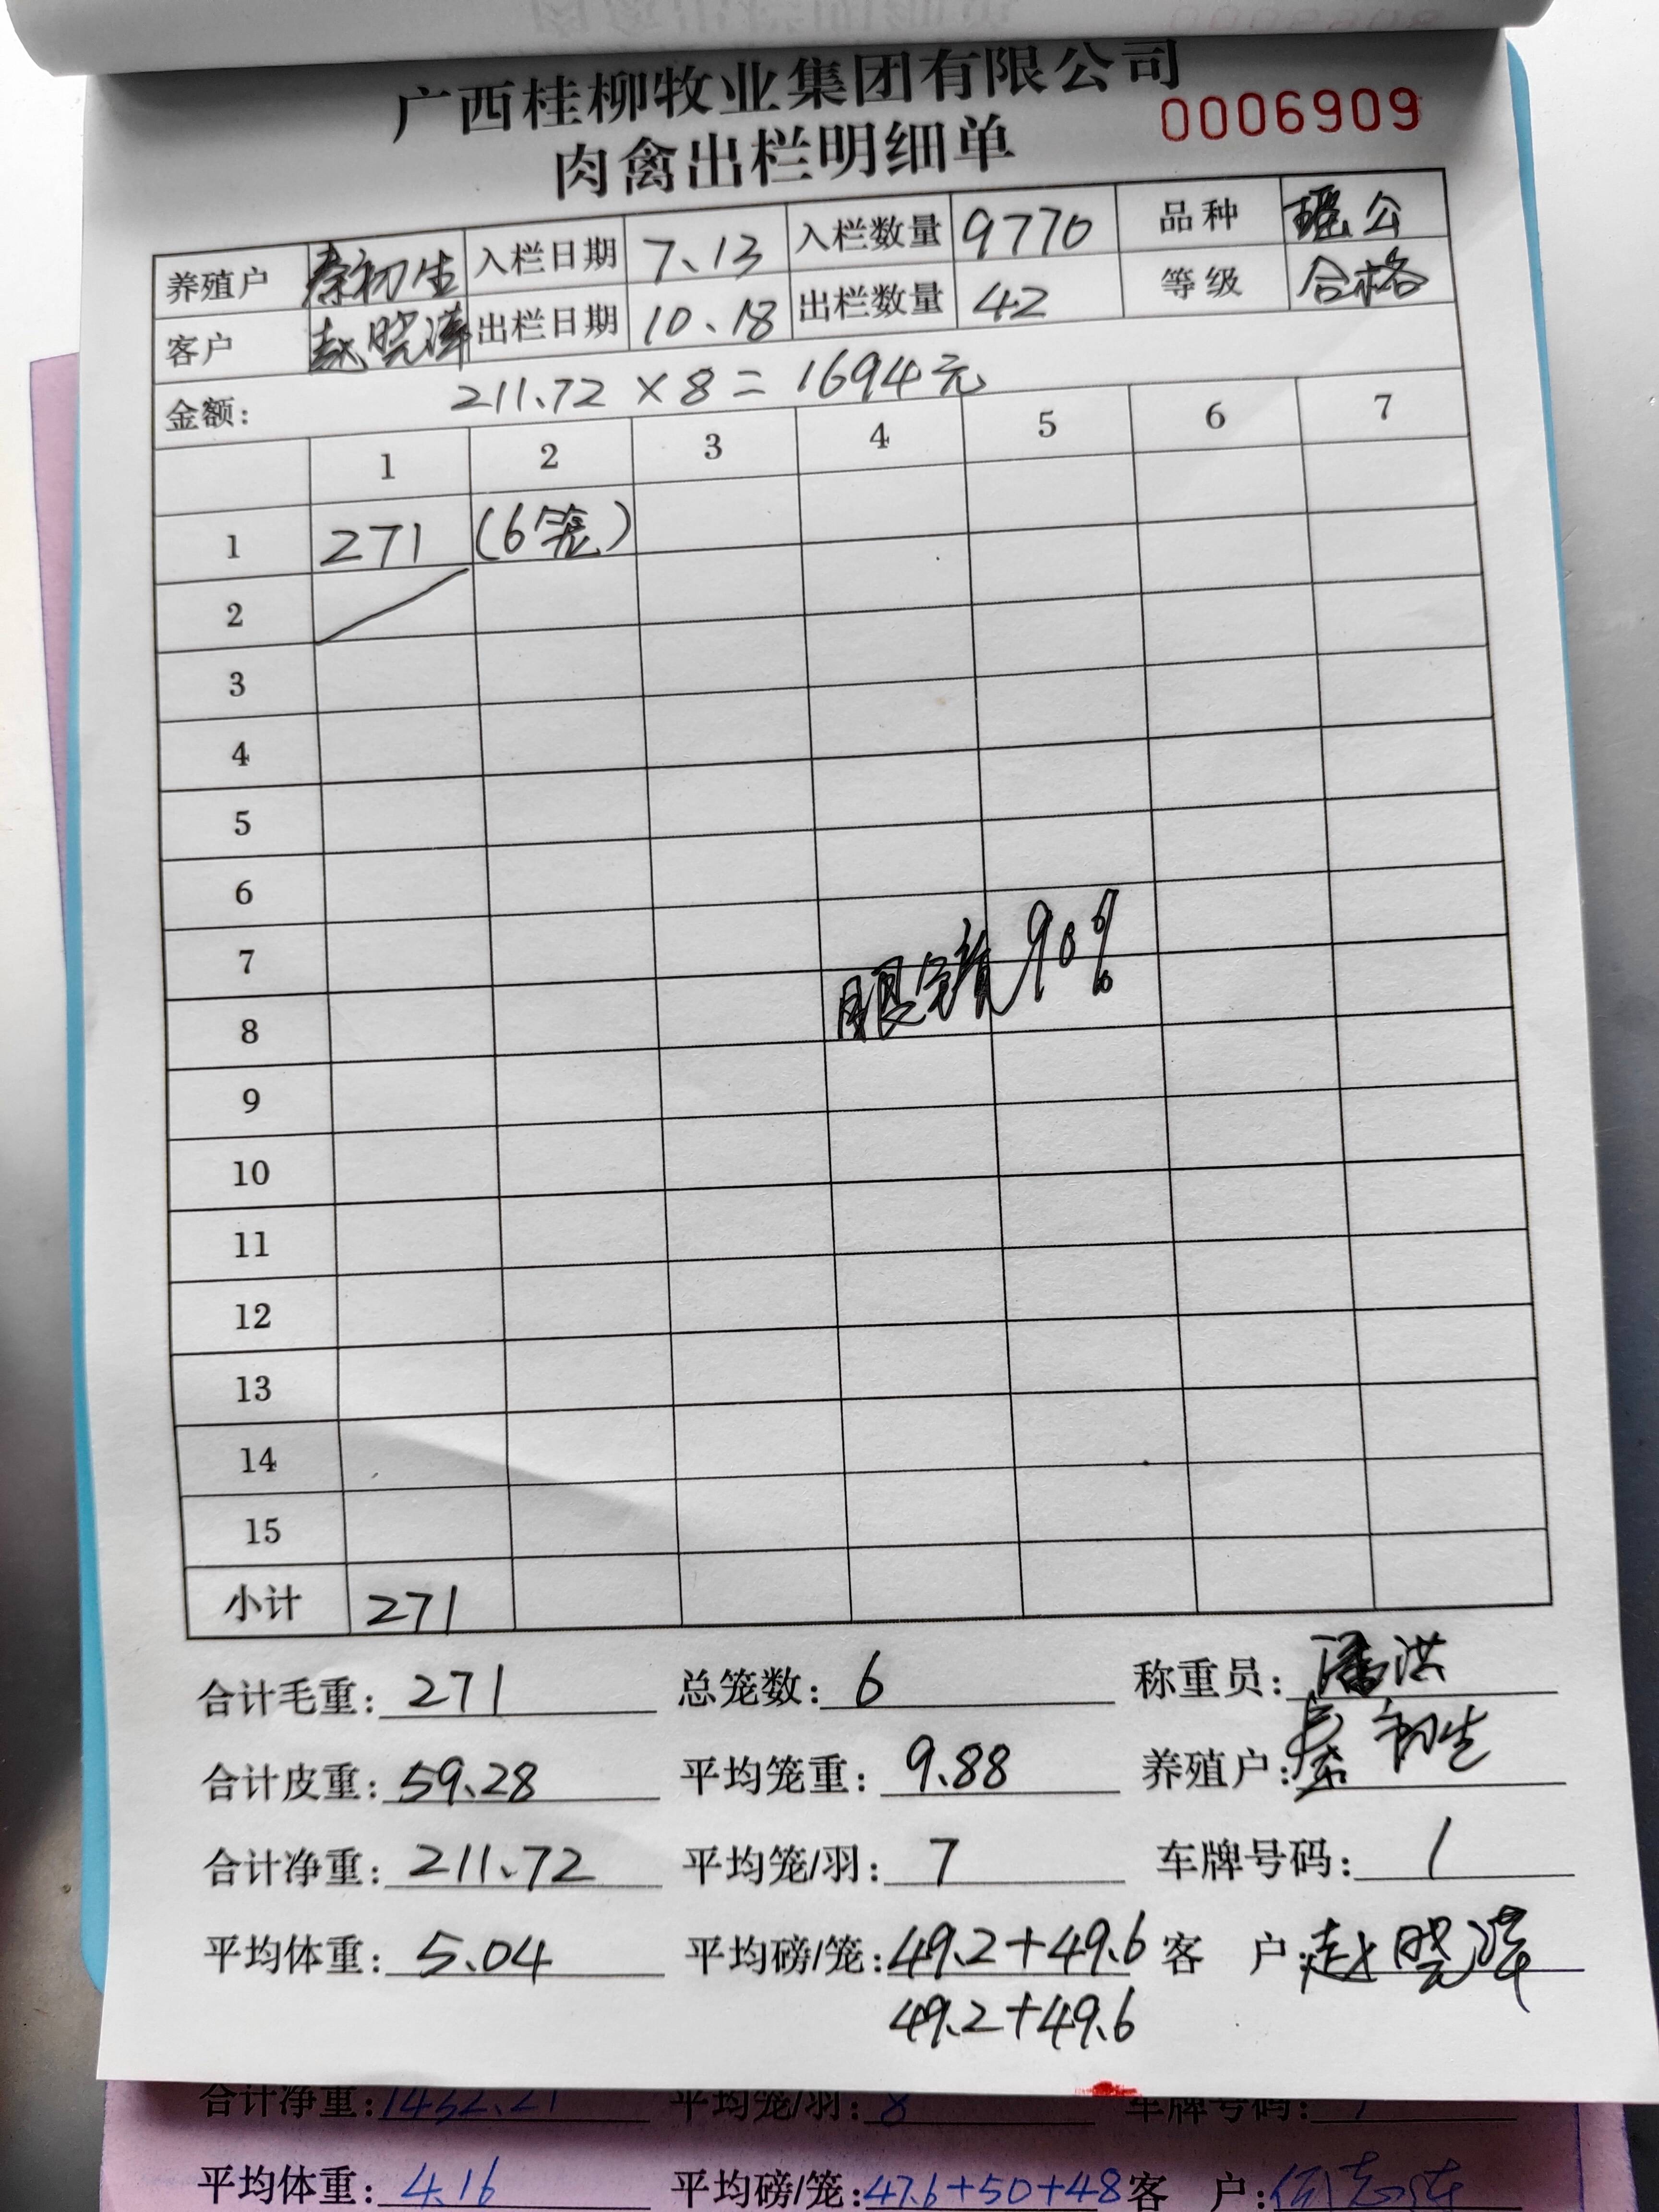 广西桂柳牧业集团有限公司
肉禽出栏明细单 0006909
养殖户 秦初生 入栏日期 7、13 入栏数量 9770 品种 瑶公
客户 赵晓 出栏日期 10、18 出栏数量 42 等级 合格
金额: 211.72 × 8 = 1694元
1 2 3 4 5 6 7
1 271 (6笼)
2
3
4
5
6
7
8 眼镜90%
9
10
11
12
13
14
15
小计 271
合计毛重: 271 总笼数: 6 称重员: 潘洪
合计皮重: 59.28 平均笼重: 9.88 养殖户: 秦初生
合计净重: 211.72 平均笼/羽: 7 车牌号码: /
平均体重: 5.04 平均磅/笼: 49.2+49.6 客 户: 赵晓
49.2+49.6
合计净重: 1432.21 平均笼/羽: 8 车牌号码: /
平均体重: 4.16 平均磅/笼: 47.6+50+48 客 户: